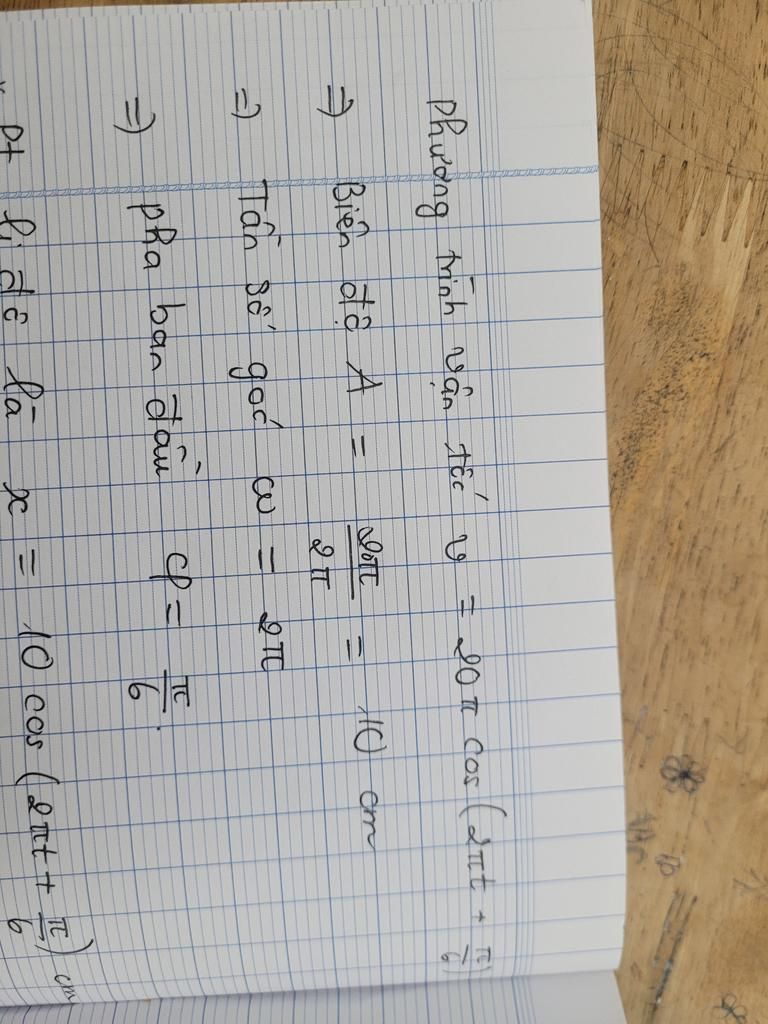 Phương trình vận tốc v = 20π cos (2πt + π/6)
=> Biên độ A = 20π/2π = 10 cm
=> Tần số góc ω = 2π
=> pha ban đầu φ = π/6.
pt li độ là x = 10 cos (2πt + π/6) cm